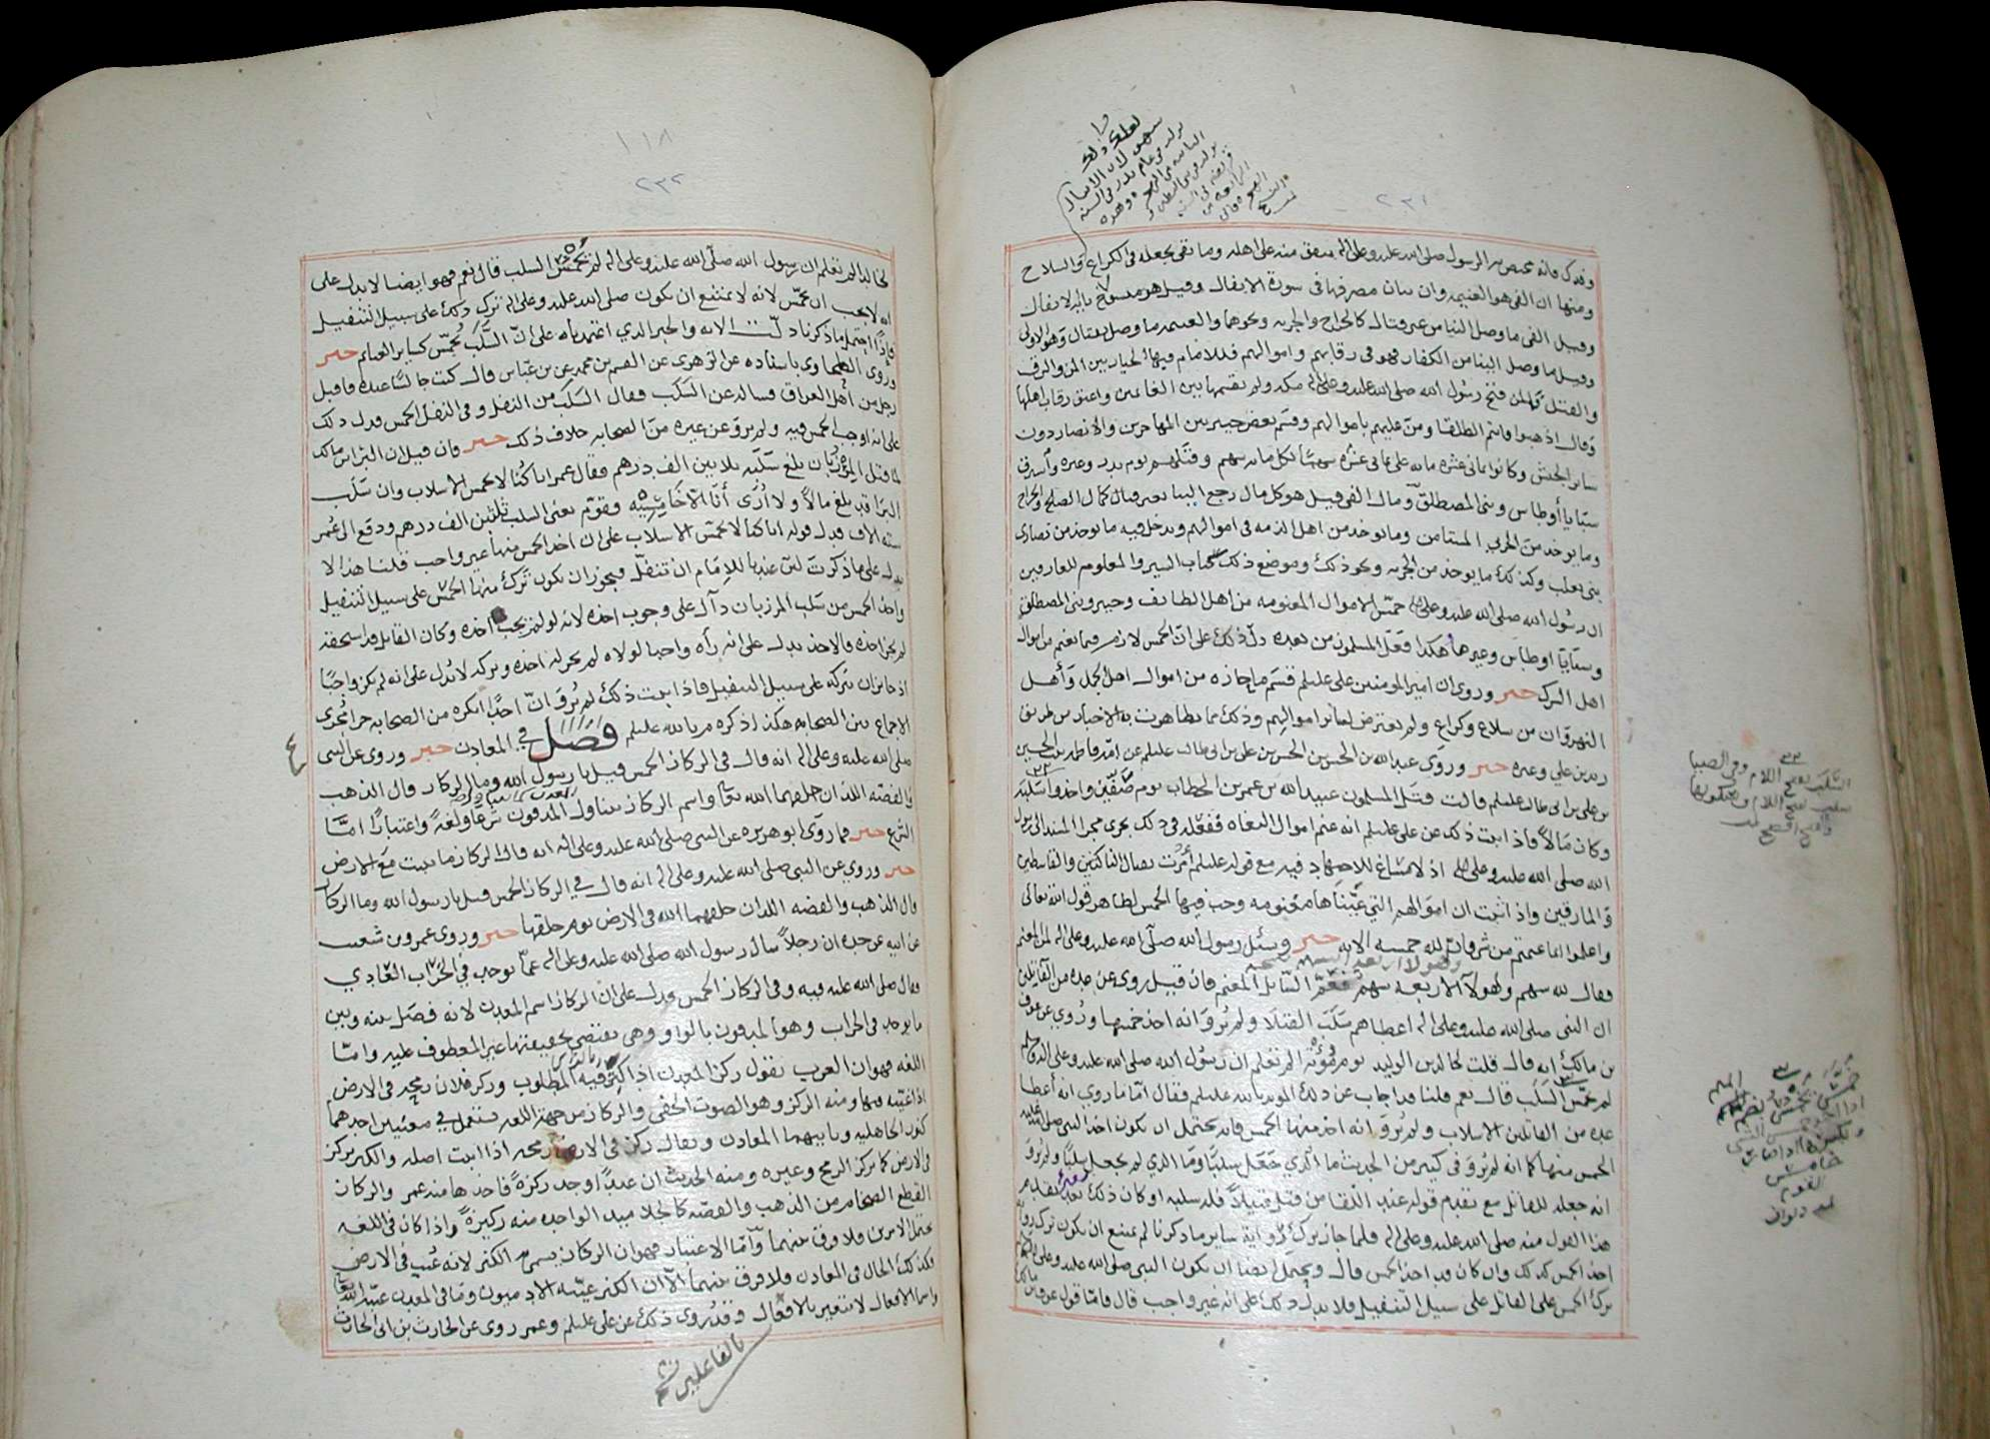 ٢٣١
وفدك فانه مختص به الرسول صلى الله عليه وعلى اله ينفق منه على اهله وما بقى يجعله فى الكراع والسلاح
ومنها ان الفى هو الغنيمه وان بيان مصرفها فى سورة الانفال وقيل هو منسوخ باية الانفال
وقيل الفى ما وصل الينا من غير قتال كالخراج والجزيه ونحوهما والغنيمه ما وصل بقتال وهو الاولى
وقيل ما وصل الينا من الكفار فهو فى رقابهم واموالهم فللامام فيها الخيار بين المن والرق
والقتل فتح رسول الله صلى الله عليه وعلى اله مكه ولم يقسمها بين الغانمين واعتق رقاب اهلها
وقال اذهبوا فانتم الطلقا ومن عليهم باموالهم وقسم بعض خيبر بين المهاجرين والانصار دون
سائر الجيش وكانوا ثمانى عشره مايه على ثمانى عشره سهمًا لكل مايه سهم وقتلهم يوم بدر وغيره واسترق
سبايا أوطاس وبنى المصطلق ومال الفى قيل هو كل مال رجع الينا بغير قتال كمال الصلح والخراج
وما يوخذ من الحربى المستامن وما يوخذ من اهل الذمه فى اموالهم ويدخل فيه ما يوخذ من نصارى
بنى تغلب وكذلك ما يوخذ من الجزيه ونحو ذلك وموضع ذلك كتاب السير والمعلوم للعارفين
ان رسول الله صلى الله عليه وعلى اله خمّس الاموال المغنومه من اهل الطائف وخيبر وبنى المصطلق
وسبايا اوطاس وغيرها هكذا فعل المسلمون من بعده دل ذلك على ان الخمس لازم فيما يغنم من اموال
اهل الشرك خبر وروى ان امير المومنين على عليلم قسم ما حازه من اموال اهل الجمل وأهل
النهروان من سلاح وكراع ولم يعترض لسائر اموالهم وذلك مما تظاهرت به الاخبار من طريق
زيد بن على وغيره خبر وروى عبد الله بن الحسن بن الحسن بن على بن ابى طالب عليلم عن امه فاطمه بنت الحسين
بن على بن ابى طالب عليلم قالت قتل المسلمون عبيد الله بن عمر بن الخطاب يوم صفين واخذوا سلبه
وكان مالا فاذا ثبت ذلك عن على عليلم انه غنم اموال البغاه ففعله فى ذلك يجرى مجرى المسند الى رسول
الله صلى الله عليه وعلى اله اذ لا مساغ للاجتهاد فيه مع قوله عليلم أمرت بقتال الناكثين والقاسطين
والمارقين واذا ثبت ان اموالهم التى عيناها مغنومه وجب فيها الخمس لظاهر قول الله تعالى
واعلموا انما غنمتم من شى فان لله خمسه الايه خبر وسئل رسول الله صلى الله عليه وعلى اله لمن المغنم
فقال لله سهم ولهولآ الاربعه سهم فعمّ السائل المغنم فان قيل روى عن عده من القاتلين
ان النبى صلى الله عليه وعلى اله اعطاهم سلب القتلا ولم يُروَ انه اخذ خمسها ورُوى عن عوف
بن مالك انه قال قلت لخالد بن الوليد يوم موته الم تعلم ان رسول الله صلى الله عليه وعلى اله وسلم
لم يخمّس السلب قال نعم قلنا قد اجاب عن ذلك المويد بالله عليلم فقال أما ما روى انه أعطا
عده من القاتلين الاسلاب ولم يُروَ انه اخذ منها الخمس فانه يحتمل ان يكون اخذ النبى صلى الله عليه
الخمس منها كما انه لم يُروَ فى كثير من الحديث ما الذى جعل سلبًا وما الذى لم يجعل سلبًا ولم يُروَ
انه جعله للقاتل مع تقدم قوله عند اللقا من قتل قتيلاً فله سلبه او كان ذلك بعد تقدم
هذا القول منه صلى الله عليه وعلى اله فلما جاز ترك رواية سائر ما ذكرنا لم يمتنع ان يكون ترك رواية
اخذ الخمس كذلك وان كان قد اخذ الخمس قال ويحتمل ايضا ان يكون النبى صلى الله عليه وعلى اله
ترك الخمس على القاتل على سبيل التنفيل فلا يدل ذلك على انه غير واجب قال فاما قول عوف بن مالك
السَّلَب بفتح اللام وفى الضيا
١١٨
٢٣٢
لخالد الم تعلم ان رسول الله صلى الله عليه وعلى اله لم يُخمّس السلب قال نعم فهو ايضا لا يدل على
انه لا يجب ان يخمّس لانه لا يمتنع ان يكون صلى الله عليه وعلى اله ترك ذلك على سبيل التنفيل
فإذا احتمل ما ذكرنا دلت الايه والخبر الذى اعتمدناه على انّ السَّلَب يُخمّس كسائر الغنائم خبر
وروى الطحاوى باسناده عن الزهرى عن القسم بن محمد عن بن عباس قال كنت جالسًا عنده فاقبل
رجل من أهل العراق فساله عن السَّلَب فقال السَّلَب من النفل وفى النفل الخمس فدل ذلك
على انه اوجب الخمس فيه ولم يروَ عن غيره من الصحابه خلاف ذلك خبر فان قيل ان البرا بن مالك
لما قتل المرزبان بلغ سلبه ثلاثين الف درهم فقال عمر انا كنا لا نخمس الاسلاب وان سَلَب
البرا قد بلغ مالاً ولا اُرَى أنّا الّا خَامِسيه فقوّم يعنى السلب بثلثين الف درهم ودفع الى عمر
سته الاف فدل قوله انا كنا لا نخمّس الاسلاب على ان اخذ الخمس منها غير واجب قلنا هذا لا
يدل على ما ذكرت لان عندنا للامام ان ينفل فيجوز ان يكون ترك منها الخمس على سبيل التنفيل
واخذ الخمس من سلب المرزبان دآل على وجوب اخذه لانه لو لم يجب اخذه وكان القاتل قد استحقه
لم يجز اخذه فالاخذ يدل على انه رآه واجبا لولاه لم يجز له اخذه وتركه لا يدل على انه لم يكن واجبًا
اذ جائز ان يتركه على سبيل التنفيل فاذا ثبت ذلك ولم يُروَ انّ احدًا انكره من الصحابه جرا مجرى
الاجماع بين الصحابه هكذا ذكره م بالله عليلم فصل في المعادن خبر وروى عن النبى
صلى الله عليه وعلى اله انه قال فى الركاز الخمس قيل يا رسول الله وما الركاز قال الذهب
والفضه اللذان خلقهما الله تعا واسم الركاز يتناول المدفون شرعًا ولغةً واعتبارًا امّا
الشرع خبر فما روى ابو هريره عن النبى صلى الله عليه وعلى اله انه قال الركاز ما ينبت مع الارض
خبر وروي عن النبى صلى الله عليه وعلى اله انه قال في الركاز الخمس قيل يا رسول الله وما الركاز
قال الذهب والفضه اللذان خلقهما الله فى الارض يوم خلقها خبر وروى عمرو بن شعيب
عن ابيه عن جده ان رجلاً سال رسول الله صلى الله عليه وعلى اله عمّا يوجد في الخراب العَادِي
فقال صلى الله عليه فيه وفى الركاز الخمس فدل على ان الركاز اسم المعدن لانه فصَل بينه وبين
ما يوجد فى الخراب وهو المدفون بالواو وهى تقتضى بحقيقتها غير المعطوف عليه وامّا
اللغه فهو ان العرب تقول ركز المعدن اذا اكثر فيه المطلوب وركز فلان رمحه فى الارض
اذا غيّبه فيها ومنه الركز وهو الصوت الخفى والركاز من جهة اللغه يستعمل في معنيين احدهما
كنوز الجاهليه وثانيهما المعادن ويقال ركز فى الارض رمحه اذا اثبت اصله والكنز يركز
فى الارض كما يركز الرمح وغيره ومنه الحديث ان عبدًا اوجد ركزةً فاخذها منه عمر والركاز
القطع الضخام من الذهب والفضه كالجلاميد الواحده منه ركيزةً واذا كان فى اللغه
يحتمل الامرين فلا فرق بينهما وآمّا الاعتبار فهو ان الركاز يسمى به الكنز لانه غُيّب فى الارض
وكذلك الحال فى المعادن فلا فرق بينهما الّا ان الكنز غيّبه الادميون وما فى المعدن غيّبه الله تعا
واسما الافعال لا تتغير بالافعال وقد رُوى ذلك عن على عليلم وعمر روى عن الحارث بن ابى الحارث
بالفاعلين